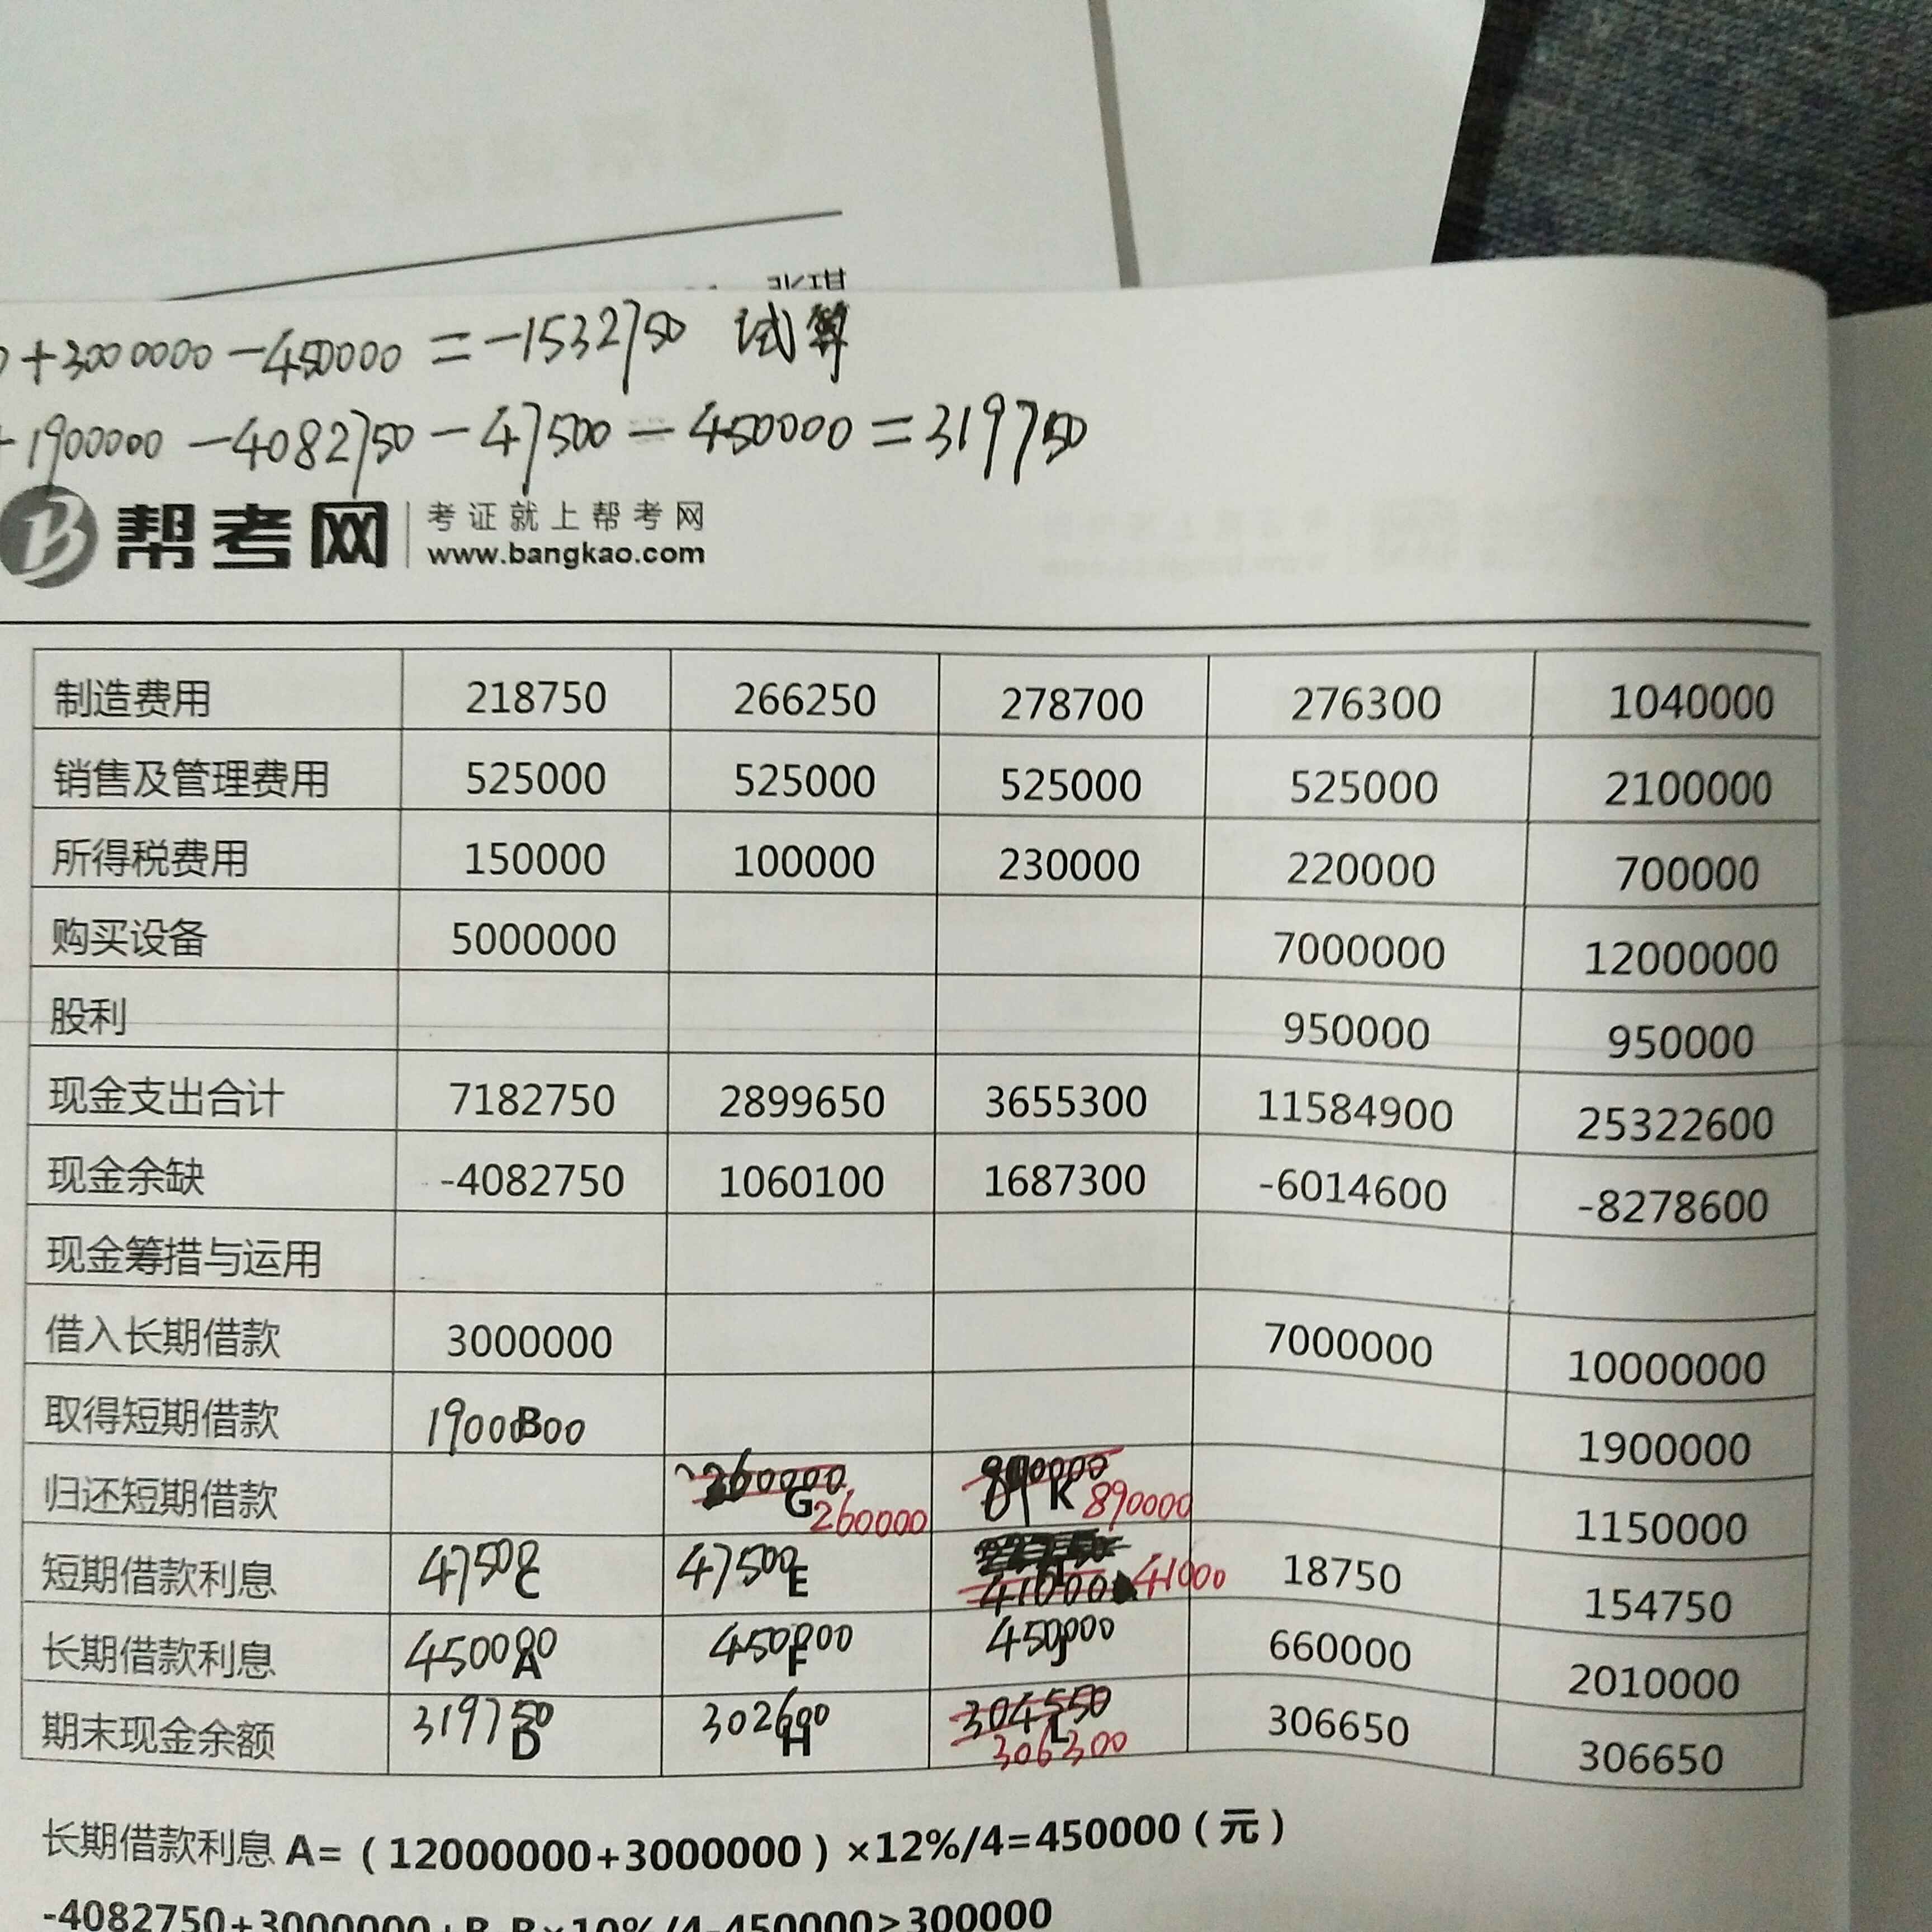 张琪
+3000000-450000=-1532750 试算
+1900000-4082750-47500-450000=319750
B 帮考网 考证就上帮考网
www.bangkao.com
制造费用 218750 266250 278700 276300 1040000
销售及管理费用 525000 525000 525000 525000 2100000
所得税费用 150000 100000 230000 220000 700000
购买设备 5000000 7000000 12000000
股利 950000 950000
现金支出合计 7182750 2899650 3655300 11584900 25322600
现金余缺 -4082750 1060100 1687300 -6014600 -8278600
现金筹措与运用
借入长期借款 3000000 7000000 10000000
取得短期借款 1900000 B 1900000
归还短期借款 260000 G 260000 K 890000 1150000
短期借款利息 47500 C 47500 E 41000 41000 18750 154750
长期借款利息 450000 A 450000 F 450000 J 660000 2010000
期末现金余额 319750 D 302600 H 304550 L 306300 306650 306650
长期借款利息 A=（12000000+3000000）×12%/4=450000（元）
-4082750+3000000+B-B×10%/4-450000≥300000